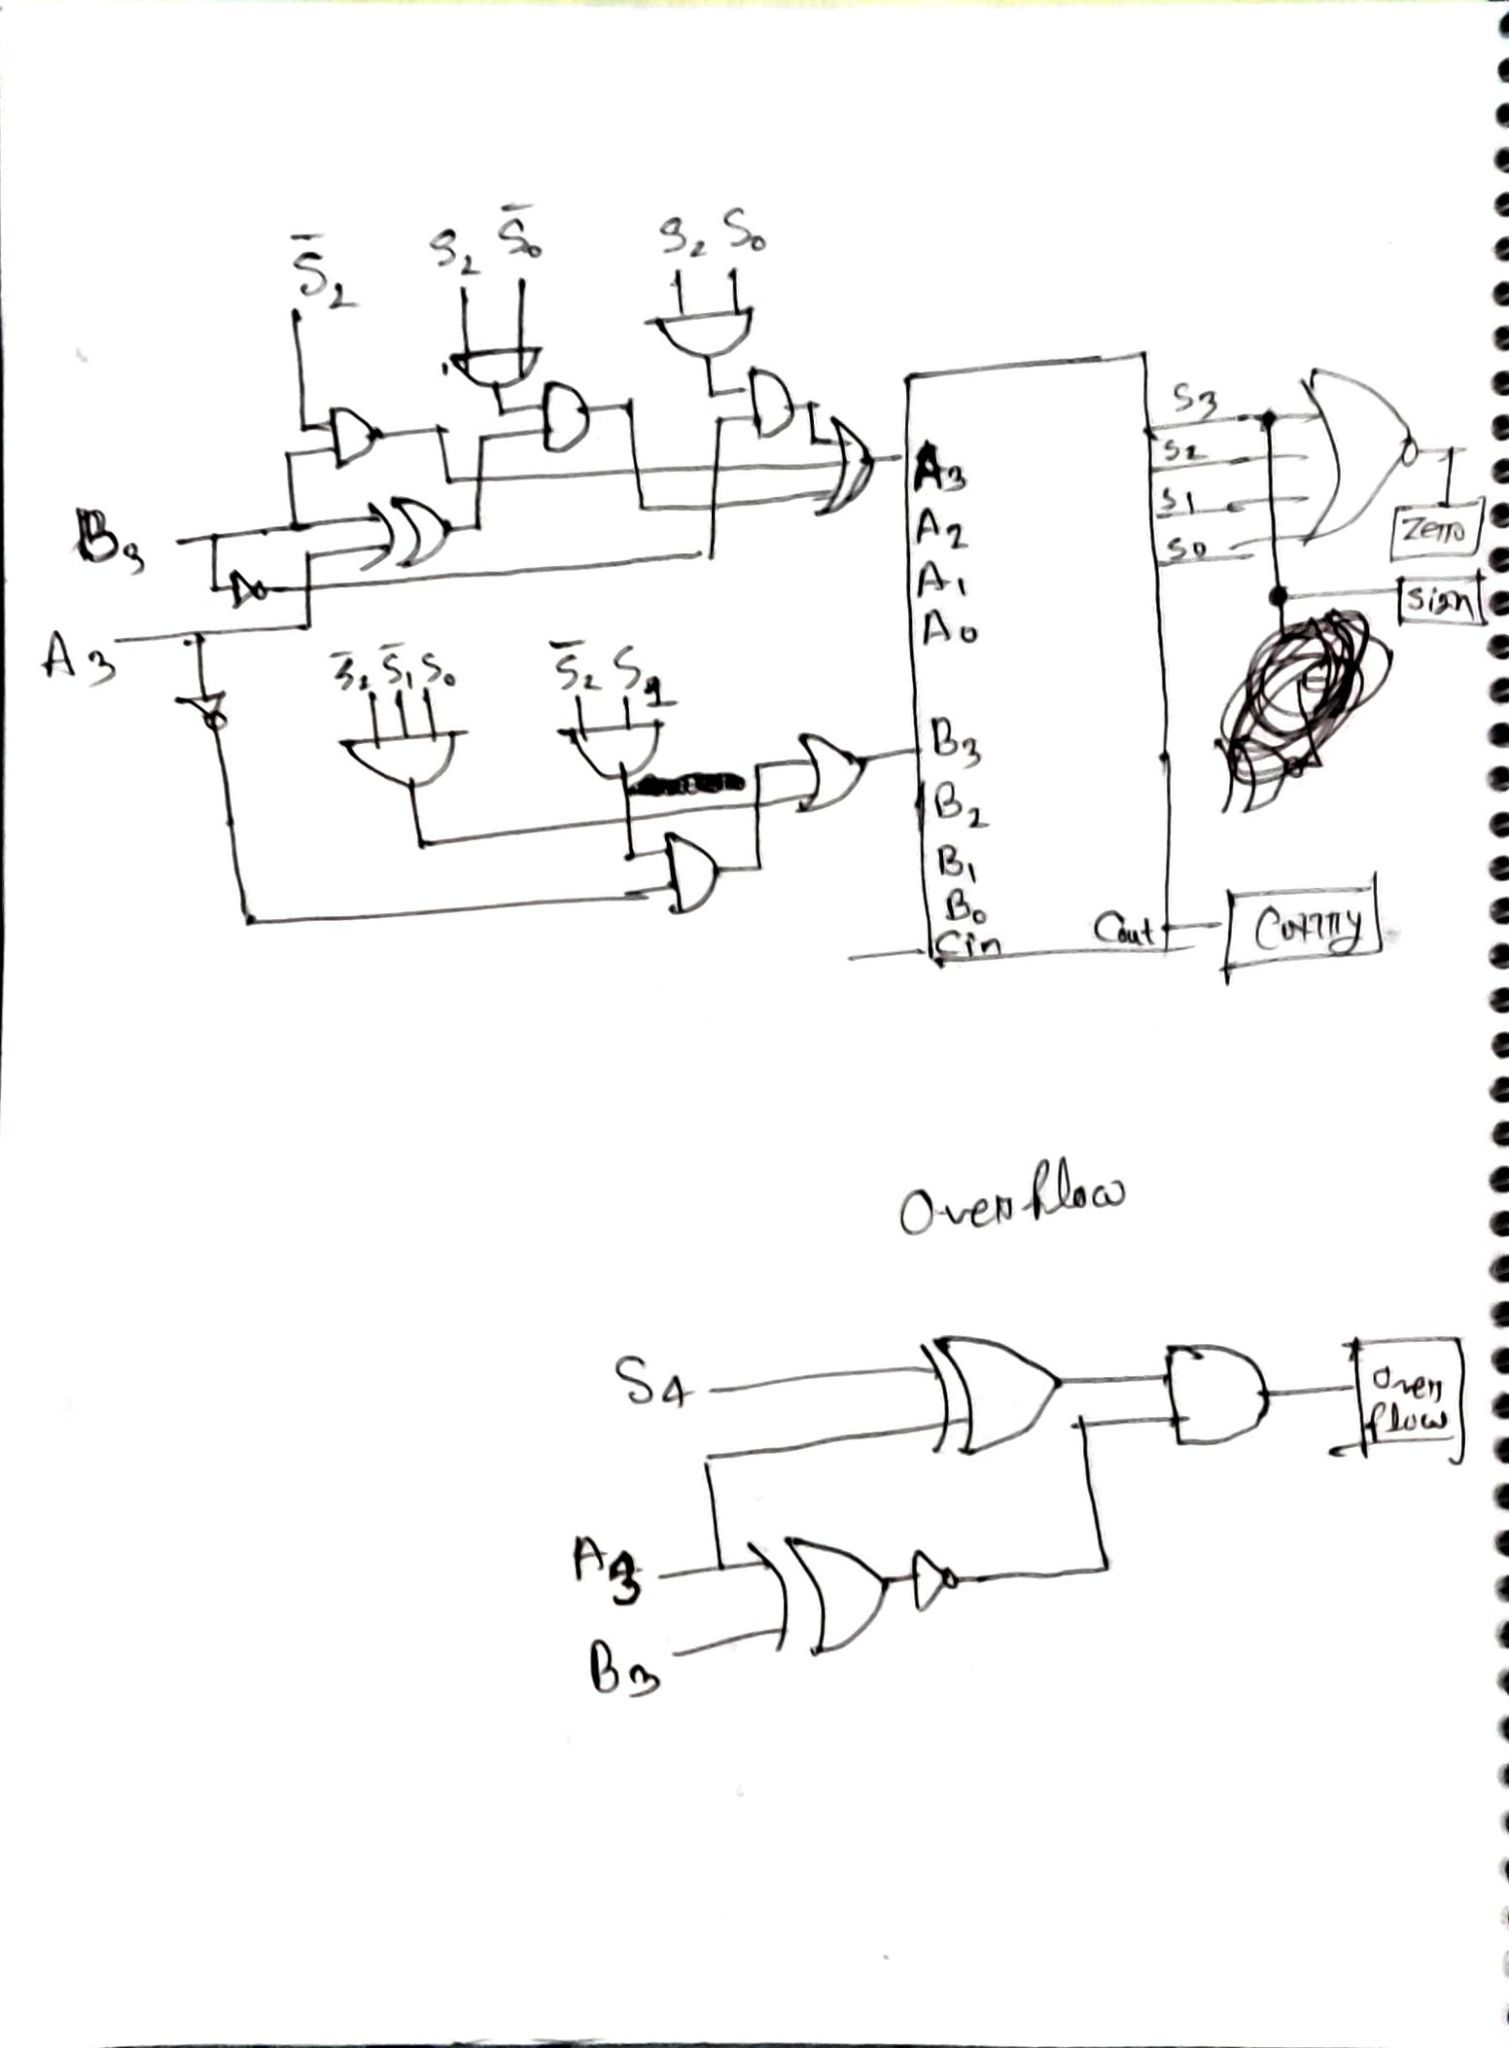 S̅₂ S₂ S̅₀ S₂ S₀
B₃
A₃
S̅₂ S̅₁ S₀ S̅₂ S₁
A₃
A₂
A₁
A₀
B₃
B₂
B₁
B₀
Cin
Cout
S₃
S₂
S₁
S₀
Zero
Sign
Carry
Overflow
S₄
A₃
B₃
Over
flow